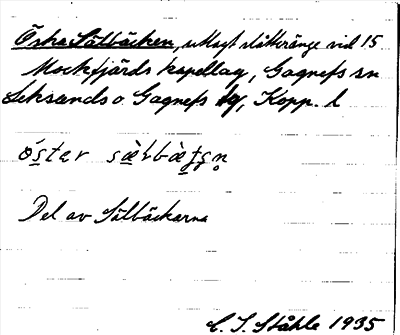 Öska Sälbäcken, utlagt slåtteränge vid 15
Mockfjärds kapellag, Gagnefs sn
Leksands o. Gagnefs tg, Kopp. l
Del av Sälbäckarna
C. I. Ståhle 1935